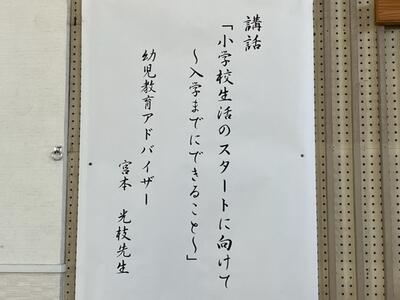 講話
「小学校生活のスタートに向けて
～入学までにできること～」
幼児教育アドバイザー
宮本 光枝先生